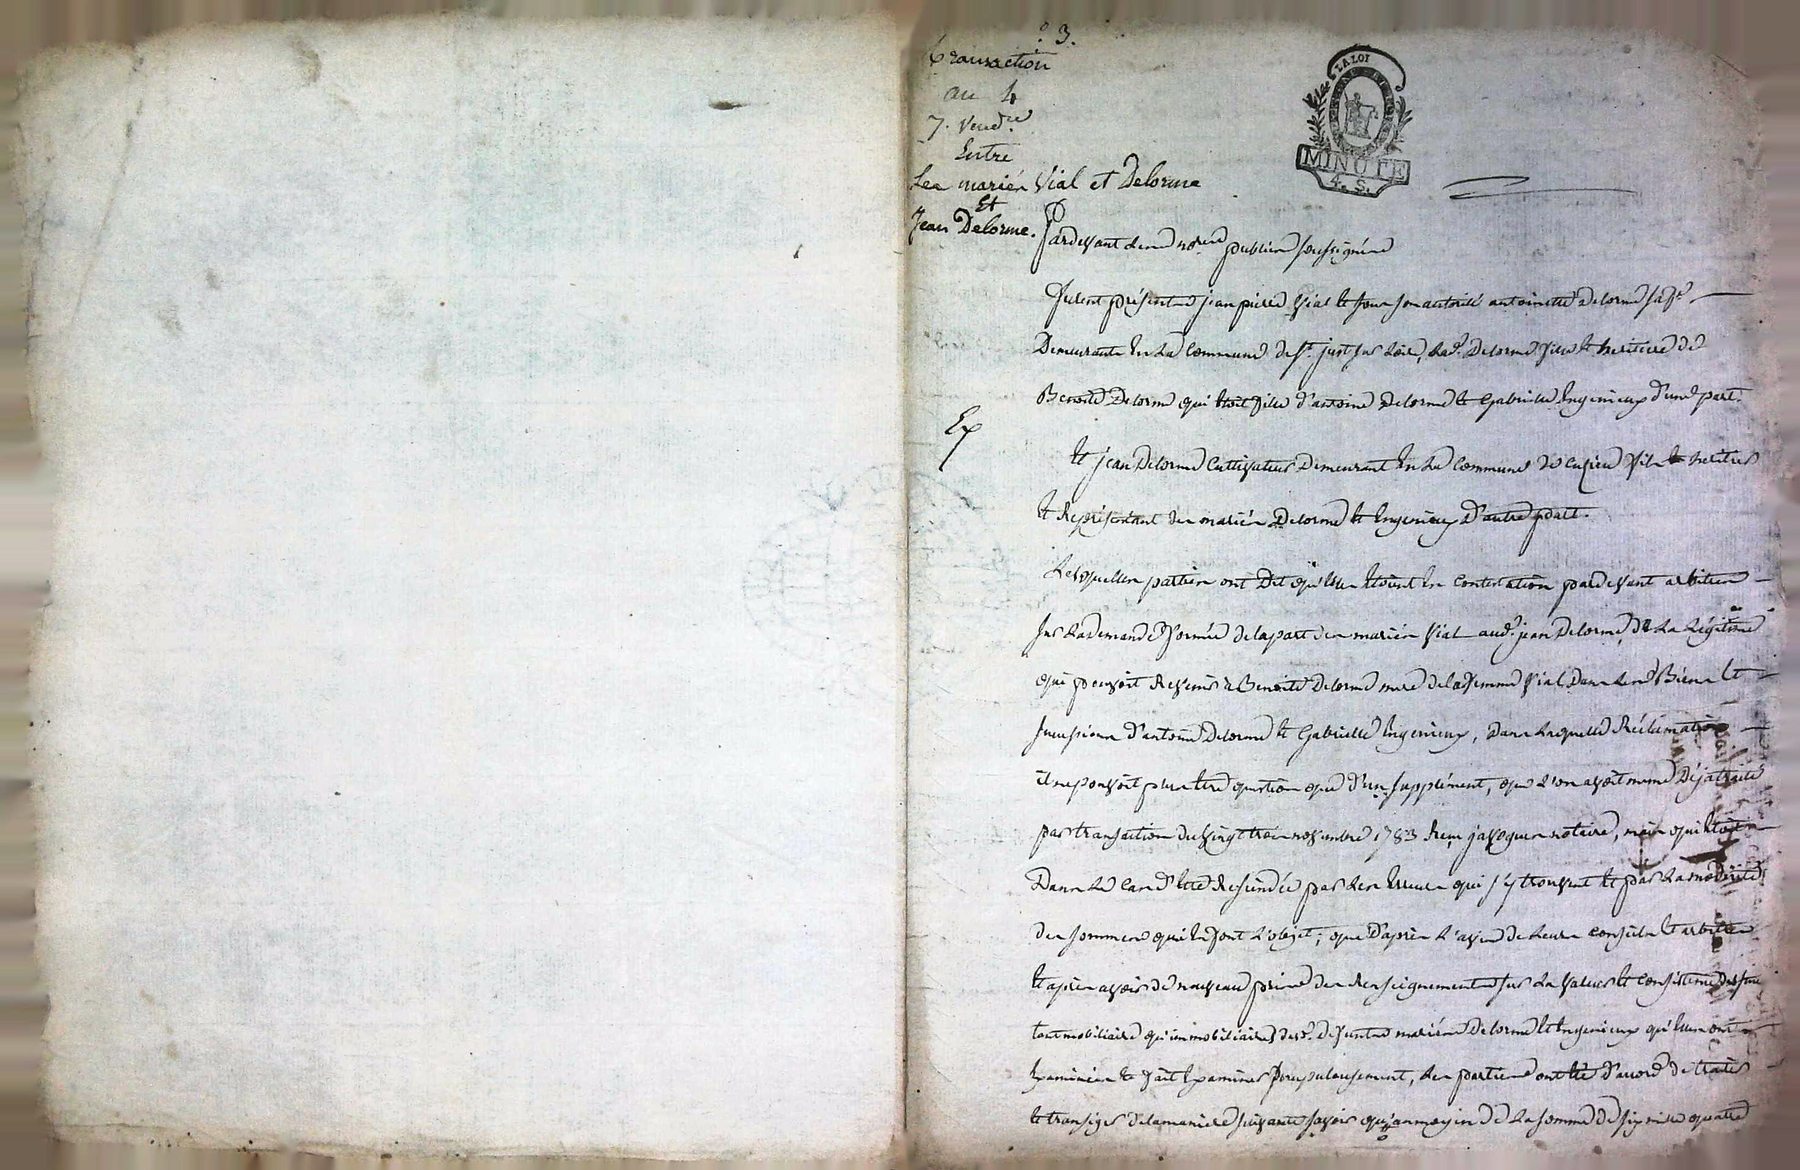 3.
transaction
an 4
7. Vend.re
Entre
Les mariés Vial et Delorme
Et
Jean Delorme.
LA LOI
MINUTE
4. S.
Pardevant les no.res publics soussignés
Furent présents jean pierre Vial et sous son autorité antoinette delorme sa fe
Demeurants en la commune de st. just sur Loire, lad. Delorme fille et heritiere de
Benoite Delorme qui étoit fille d'antoine Delorme et Gabrielle Ingenieux d'une part.
Ex
et jean Delorme Cultivateur Demeurant en la commune de Cuzieu fils et heritier
et Représentant des mariés Delorme et Ingenieux D'autre part.
Lesquelles parties ont Dit qu'elles étoient en contestation pardevant arbitres
sur la demande formée de la part des mariés Vial aud. jean Delorme, de la Légitime
qui pouvoit Revenir a Benoite Delorme mere de la femme Vial Dans les Biens et
successions d'antoine Delorme et Gabrielle Ingenieux, Dans laquelle Réclamation
il ne pouvoit plus être question que d'un supplément, que l'on avoit meme Déja traité
par transaction du vingt trois novembre 1783 Reçu javogues notaire, mais qui étoit
Dans le Cas d'être Rescindée par les erreurs qui s'y trouvent et par la modicité
des sommes qui en font L'objet; que D'après L'avis de Leurs conseils et arbitres
et après avoir de nouveau pris des Renseignements sur la valeur et consistance des
tant mobiliaires qu'immobiliaires desd. defunts mariés Delorme et Ingenieux qu'elles ont
Examinées et fait Examiner scrupuleusement, les parties ont été d'accord de traiter
et transiger de la maniere suivante savoir qu'au moyen de la somme de six mille quatre